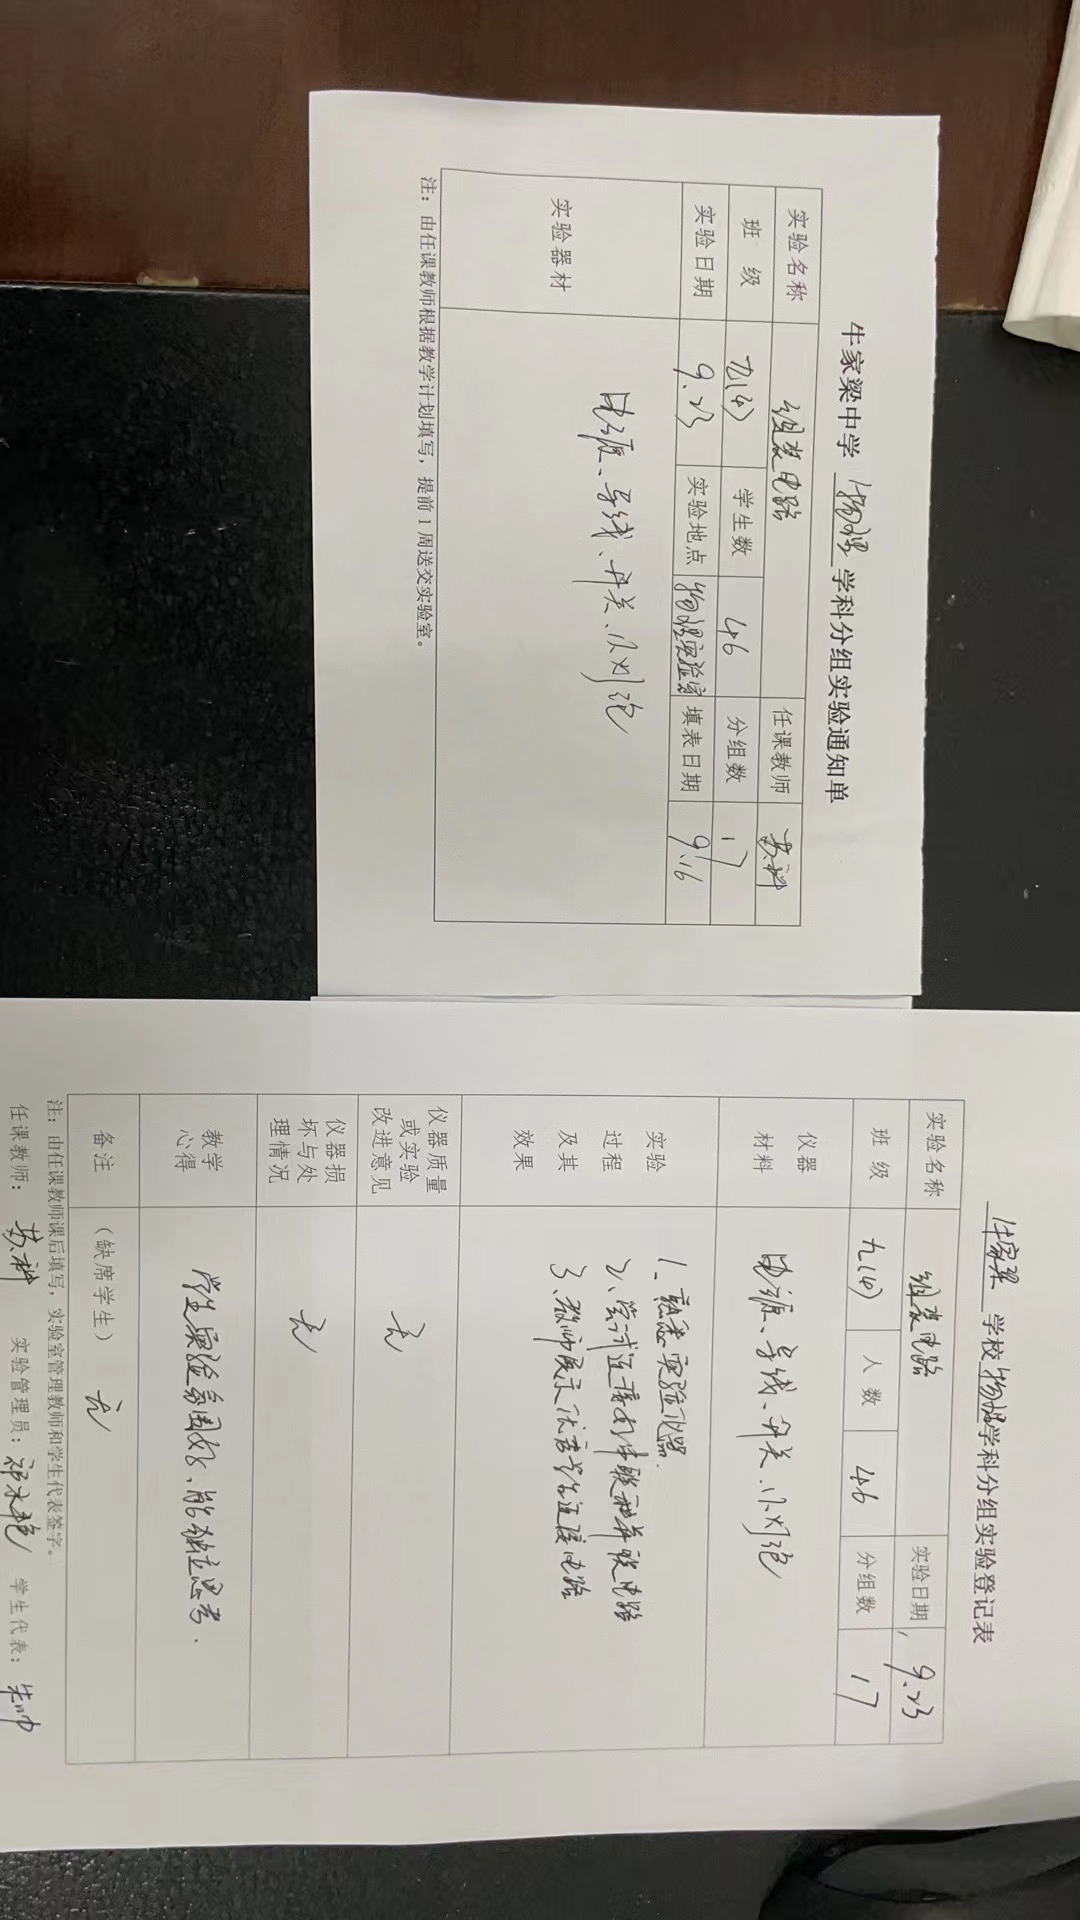 牛家梁中学 物理 学科分组实验通知单
实验名称 组装电路 任课教师 苏神
班 级 九(4) 学生数 46 分组数 17
实验日期 9.23 实验地点 物理实验室 填表日期 9.16
实验器材 电源、导线、开关、小灯泡
注：由任课教师根据教学计划填写，提前1周送交实验室。
牛家梁 学校 物理 学科分组实验登记表
实验名称 组装电路 实验日期 9.23
班 级 九(4) 人 数 46 分组数 17
仪器
材料
电源、导线、开关、小灯泡
实验
过程
及其
效果
1、熟悉实验仪器.
2、尝试连接串联和并联电路
3、教师展示优秀学生连接电路
仪器质量
或实验
改进意见
无
仪器损
坏与处
理情况
无
教学
心得
学生实验氛围好、能独立思考.
备注 （缺席学生） 无
注：由任课教师课后填写，实验室管理教师和学生代表签字。
任课教师： 实验管理员： 学生代表：朱帅